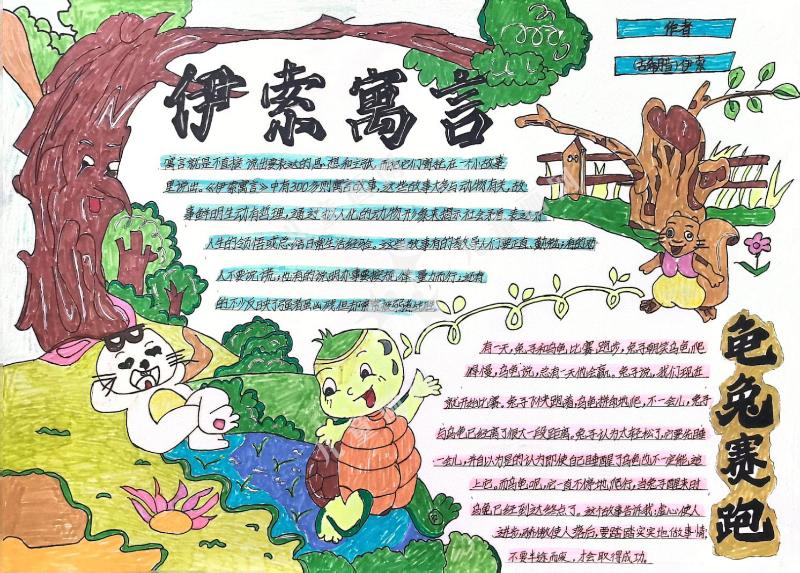 伊索寓言
作者
(古希腊)伊索
寓言就是不直接说出要表达的思想和主张,而把它们寄托在一个小故事
里说出。《伊索寓言》中有300多则寓言故事,这些故事大多与动物有关,故
事鲜明生动有哲理,通过拟人化的动物形象来揭示社会矛盾,表达对
人生的领悟或总结日常生活经验,这些故事有的教导人们要正直、勤勉;有的劝
人不要说谎;也有的说明办事要按规律,量力而行;还有
的不少反映了强者虽凶残但却
龟兔赛跑
有一天,兔子和乌龟比赛跑步,兔子嘲笑乌龟爬
得慢,乌龟说,总有一天他会赢。兔子说,我们现在
就开始比赛。兔子飞快跑着,乌龟拼命地爬,不一会儿,兔子
与乌龟已经离了很大一段距离。兔子认为太轻松了,它要先睡
一会儿,并自以为是的认为即使自己睡醒了乌龟也不一定能追
上它。而乌龟呢,它一直不停地爬行,当兔子醒来时
乌龟已经到达终点了。这个故事告诉我:虚心使人
进步,骄傲使人落后,要踏踏实实地做事情,
不要半途而废,才会取得成功。